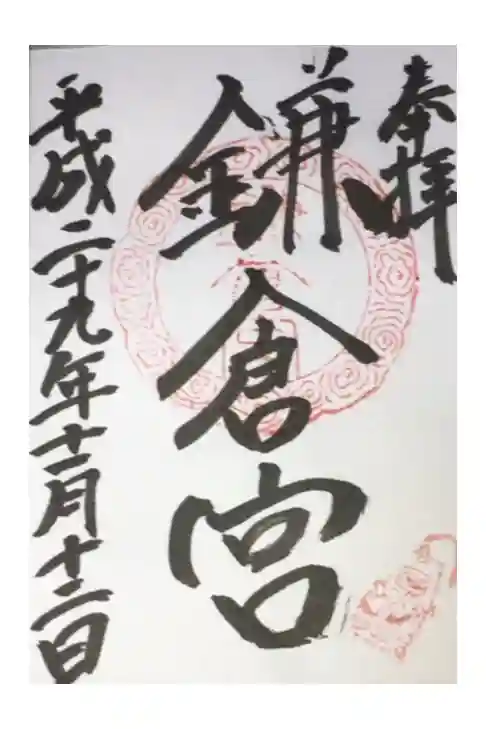 奉拝
鎌倉宮
平成二十九年十一月十二日